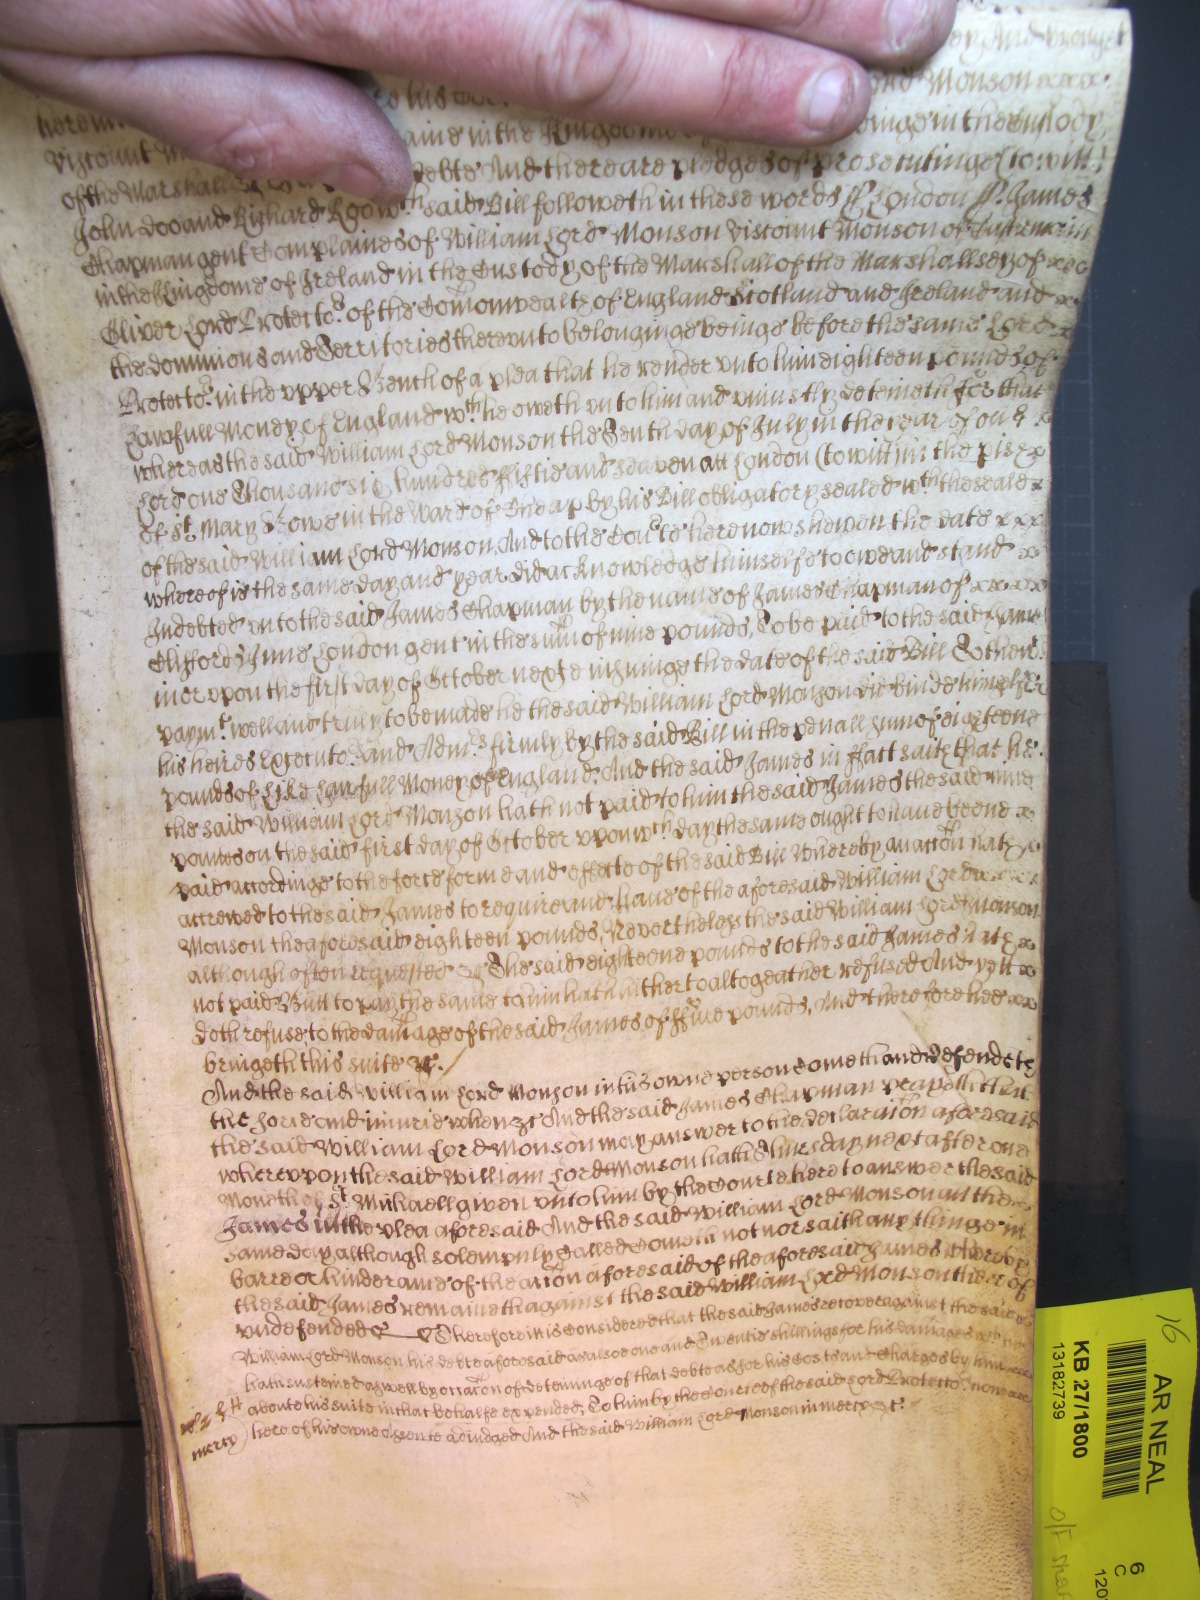 ey And brought
to his ord Monson
here in aine in the Kingdome beinge in the Custody
Viscount debte And there are pledges of prosecutinge (to witt)
of the Marshall
John Doo and Richard Roo wch said Bill followeth in these words ss London ss. James
Chapman gent Complaines of William Lord Monson Viscount Monson of
in the Kingdome of Ireland in the Custody of the Marshall of the Marshallsey of
Oliver Lord Protector of the Comonwealth of England Scotland and Ireland and
the dominions and Territories thereunto belonginge beinge before the same Lord
Protector in the upper Bench of a plea that he render unto him eighteen pounds of
Lawfull Money of England wch he oweth unto him and uniustly deteineth For that
whereas the said William Lord Monson the Tenth day of July in the yeare of our
Lord one Thousand six hundred fiftie and seaven att London (to witt) in the pish
of St. Mary Bowe in the Ward of Cheap by his Bill obligatory sealed wth the seale
of the said William Lord Monson, And to the Courte here now shewen the date
whereof is the same day and year did acknowledge himselfe to owe and stand
Indebted unto the said James Chapman by the name of James Chapman of
Cliffords Inne London gent in the sum of nine pounds, To be paid to the said James
in or upon the first day of October next ensuinge the date of the said Bill To the wch
paymt. well and truly to be made he the said William Lord Monson did binde himselfe
his heires Executors and Admrs firmly by the said Bill in the penall sum of eighteene
pounds of Like Lawfull Money of England. And the said James in ffact saith that he
the said William Lord Monson hath not paid to him the said James the said nine
pounds on the said first day of October upon wch day the same ought to have beene
paid accordinge to the force forme and effecte of the said Bill Whereby an accon hath
accrewed to the said James to require and have of the aforesaid William Lord
Monson the aforesaid eighteen pounds, Neverthelesse the said William Lord Monson
although often requested The said eighteene pounds to the said James hath
not paid Butt to pay the same to him hath hitherto altogeather refused And yett
doth refuse to the damage of the said James of ffive pounds, And therefore hee
bringeth this suite &c.
And the said William Lord Monson in his owne person cometh and defendeth
the force and injurie when &c And the said James Chapman prayeth that
the said William Lord Monson may answer to the declaracon aforesaid
whereupon the said William Lord Monson hath day next after one
Moneth of St. Michaell given unto him by the Courte here to answer the said
James in the plea aforesaid And the said William Lord Monson att the
same day although solempnly called cometh not nor saith any thinge in
barre or hinderance of the accon aforesaid of the aforesaid James Whereby
the said James remaineth against the said William Lord Monson thereof
undefended &c Therefore itt is Considered that the said James recover against the said
William Lord Monson his debte aforesaid as alsoe one and Twentie shillings for his damages wch he
hath susteined as well by occasion of deteininge of that debte as for his Costs and Charges by him
aboute his suite in that behalfe expended, To him by the Courte of the said Lord Protector now
here of his owne assente adiudged And the said William Lord Monson in mercy &c.
mercy
16
AR NEAL
KB 27/1800
13182739
6
C